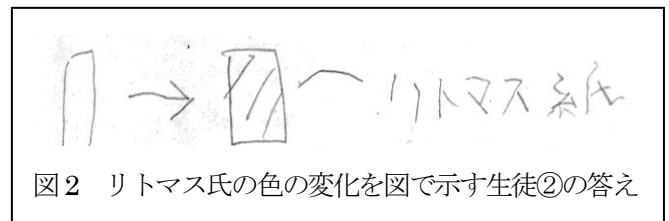 リトマス紙
図2 リトマス氏の色の変化を図で示す生徒②の答え